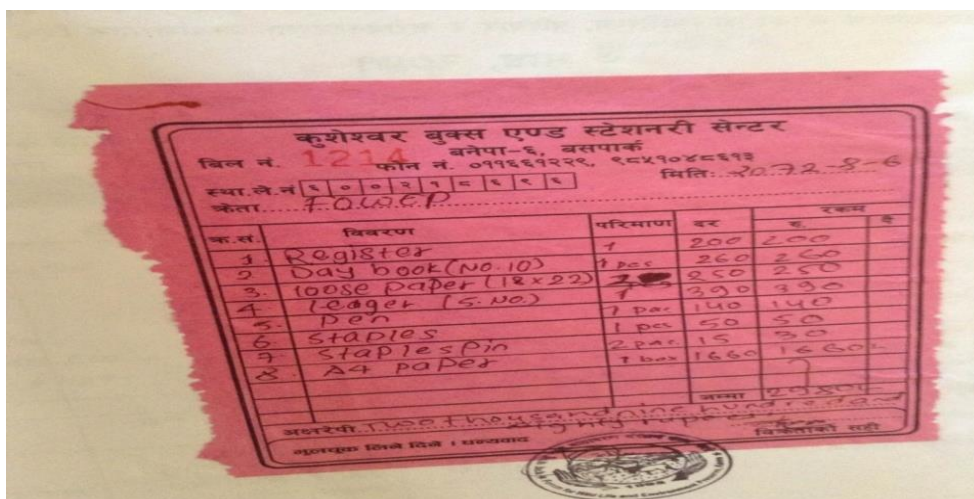 कुशेश्वर बुक्स एण्ड स्टेशनरी सेन्टर
बनेपा-६, बसपार्क
बिल नं. 1214 फोन नं. ०११६६१२२९, ९८५१०४८६१३
स्था.ले.नं ६ ० ० २ १ ८ ६ ९ ६ मिति: 2072-8-6
क्रेता
क्र.सं. विवरण परिमाण दर रकम
रु. पै
1 Register 1 200 200
2. Day book (NO.10) 1 pcs 260 260
3. loose paper (18x22) 250 250
4. leager (S.NO.) 1 390 390
5. pen 1 pac 140 140
6 staples 1 pcs 50 50
7 staples pin 2 pac 15 30
8 A4 paper 1 box 1660 1660
जम्मा 2980
अक्षरेपी Two thousand nine hundred and
eighty rupees
भूलचूक लिने दिने । धन्यवाद विक्रेताको सही